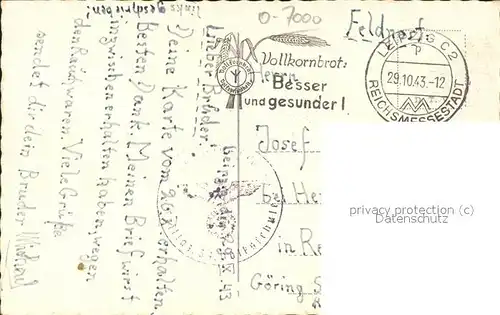 links
geschrieben!
O-7000
Feldpost
Vollkornbrot:
Besser
und gesunder!
LEIPZIG C2
P
29.10.43.-12
REICHSMESSESTADT
Herrn
Josef
bei He
in Re
Göring S
privacy protection (c)
Datenschutz
28.X.43
Lieber Bruder!
Deine Karte vom 9.X. erhalten,
Besten Dank. Meinen Brief wirst
inzwischen erhalten haben, wegen
der Rauchwaren. Viele Grüße
sendet dir dein Bruder Michael